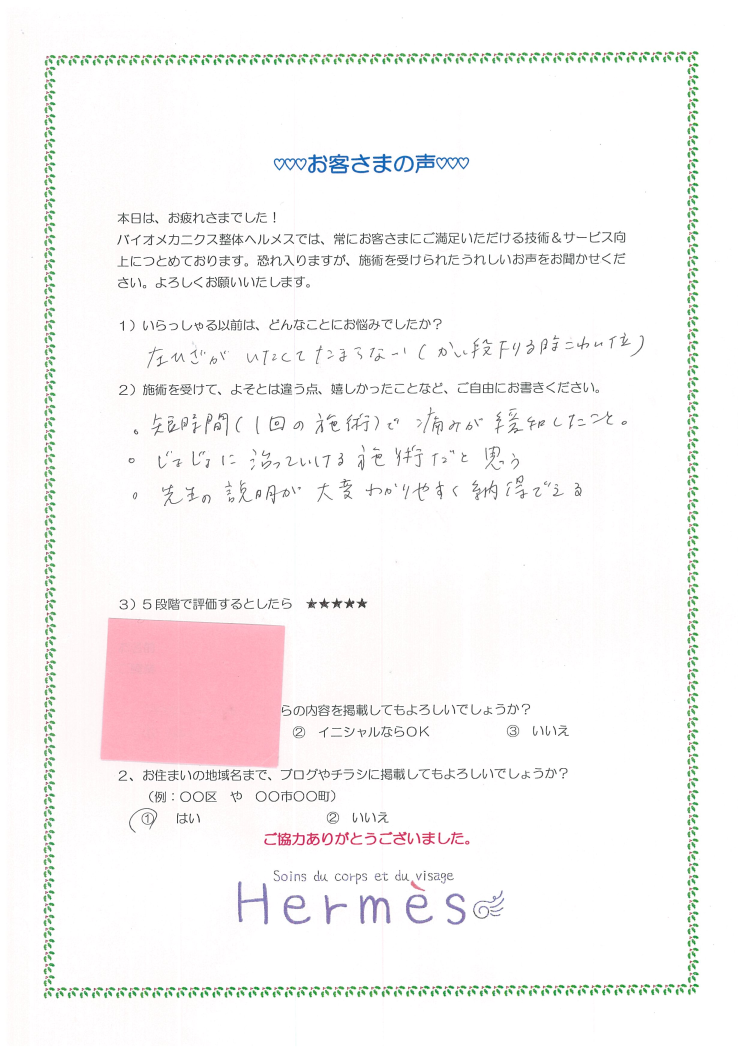 ♡♡♡お客さまの声♡♡♡
本日は、お疲れさまでした！
バイオメカニクス整体ヘルメスでは、常にお客さまにご満足いただける技術＆サービス向
上につとめております。恐れ入りますが、施術を受けられたうれしいお声をお聞かせくだ
さい。よろしくお願いいたします。
１）いらっしゃる以前は、どんなことにお悩みでしたか？
左ひざが いたくてたまらない（かい段下りる時こわい位）
２）施術を受けて、よそとは違う点、嬉しかったことなど、ご自由にお書きください。
。短時間（1回の施術）で 痛みが 緩和したこと。
。じょじょに 治っていける 施術だと 思う
。先生の 説明が 大変 わかりやすく 納得できる
３）５段階で評価するとしたら ★★★★★
らの内容を掲載してもよろしいでしょうか？
② イニシャルならＯＫ ③ いいえ
２、お住まいの地域名まで、ブログやチラシに掲載してもよろしいでしょうか？
（例：〇〇区 や 〇〇市〇〇町）
① はい ② いいえ
ご協力ありがとうございました。
Soins du corps et du visage
Hermès